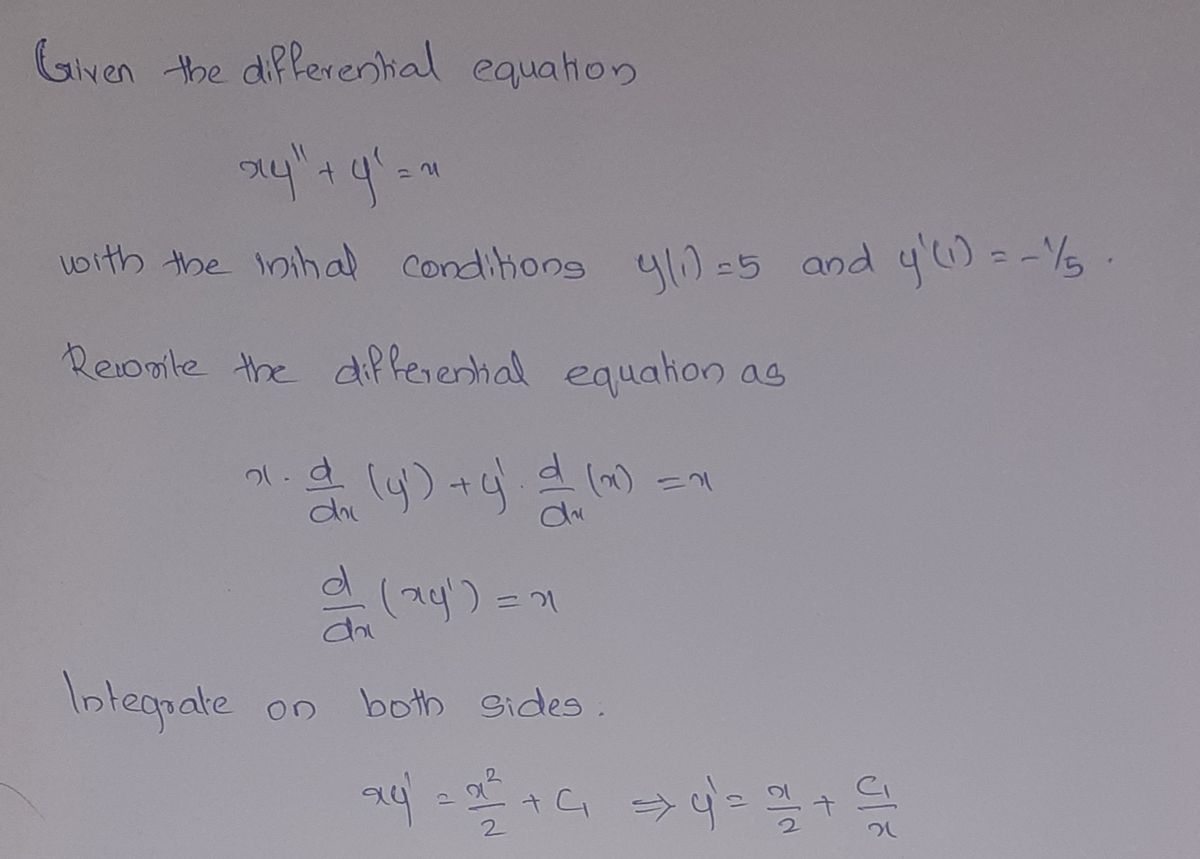 Given the differential equation
xy'' + y' = x
with the initial conditions y(1) = 5 and y'(1) = -1/5.
Rewrite the differential equation as
x. d/dx (y') + y'. d/dx (x) = x
d/dx (xy') = x
Integrate on both sides.
xy' = x²/2 + C₁ ⇒ y' = x/2 + C₁/x